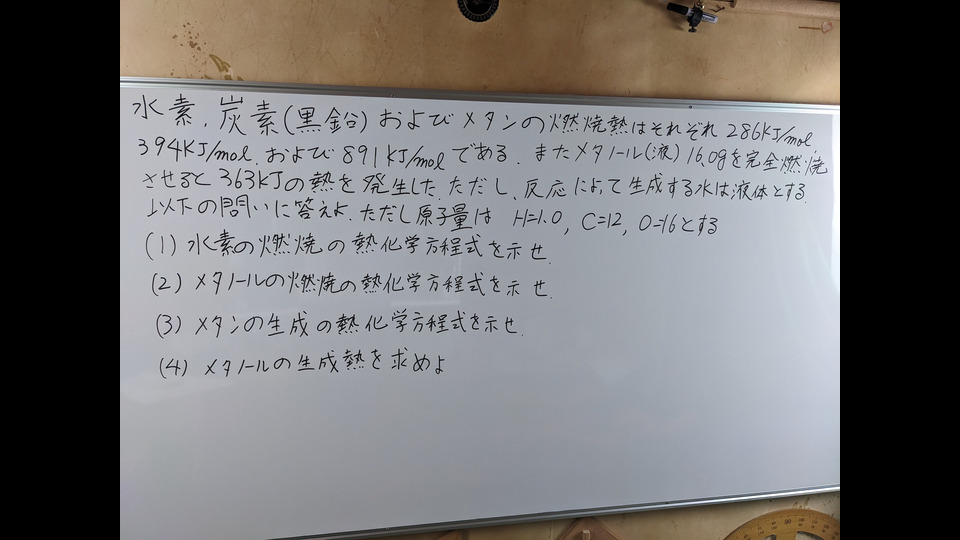 水素,炭素(黒鉛)およびメタンの燃焼熱はそれぞれ286KJ/mol
394KJ/mol.および891KJ/molである.またメタノール(液)16.0gを完全燃焼
させると363KJの熱を発生した.ただし、反応によって生成する水は液体とする.
以下の問いに答えよ.ただし原子量は H=1.0, C=12, O=16とする
(1)水素の燃焼の熱化学方程式を示せ.
(2)メタノールの燃焼の熱化学方程式を示せ.
(3)メタンの生成の熱化学方程式を示せ.
(4)メタノールの生成熱を求めよ